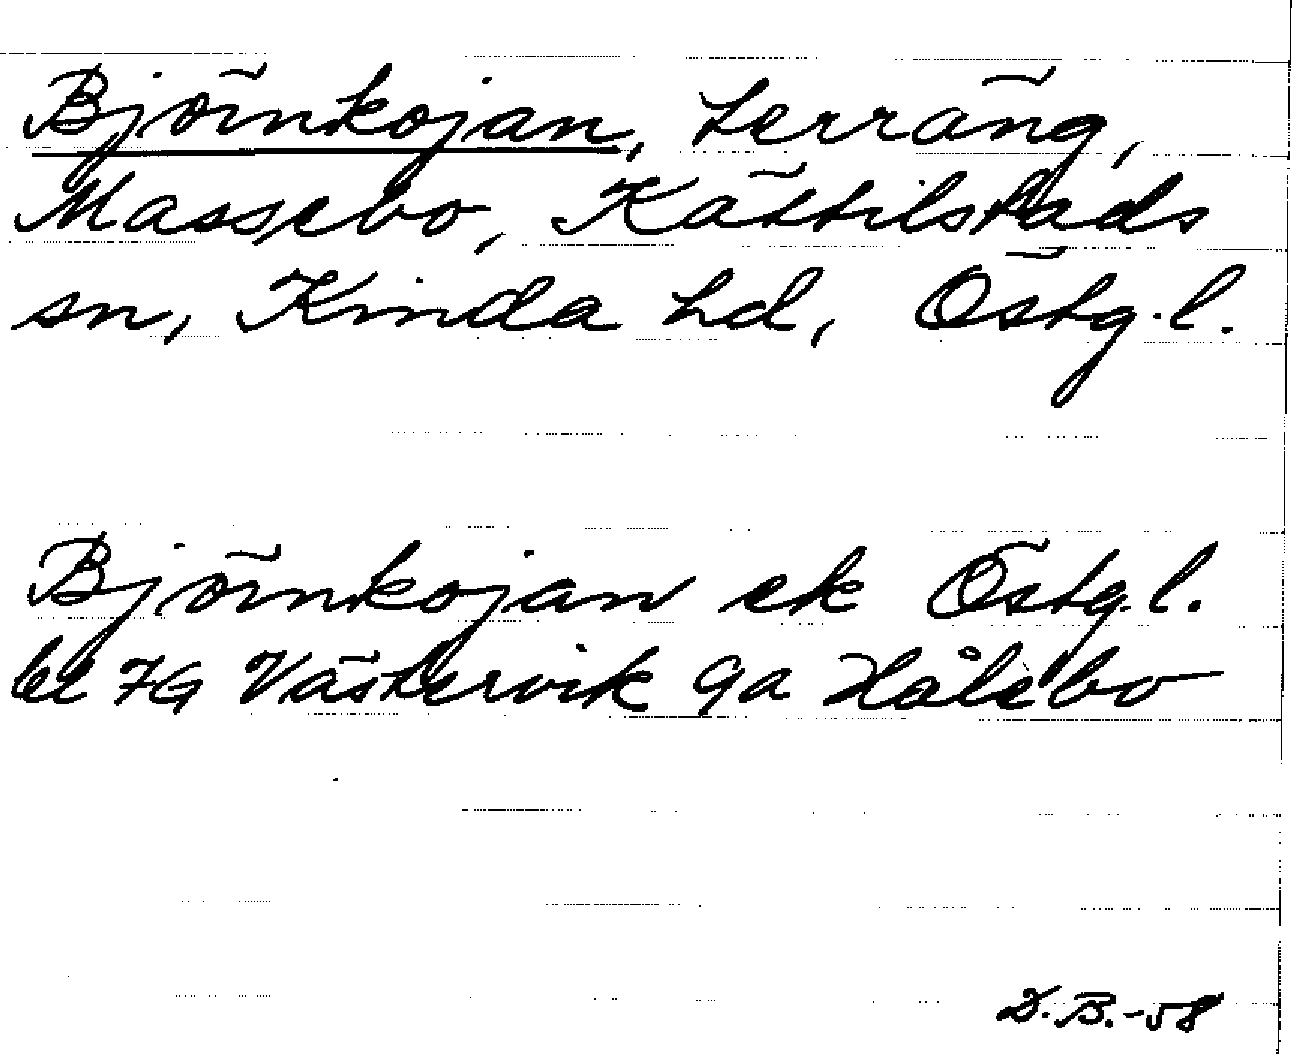 Björnkojan, terräng,
Massebo, Kättilstads
sn, Kinda hd, Östg.l.
Björnkojan ek Östg.l.
bl 7G Västervik 9a Hålebo
D.B.-58